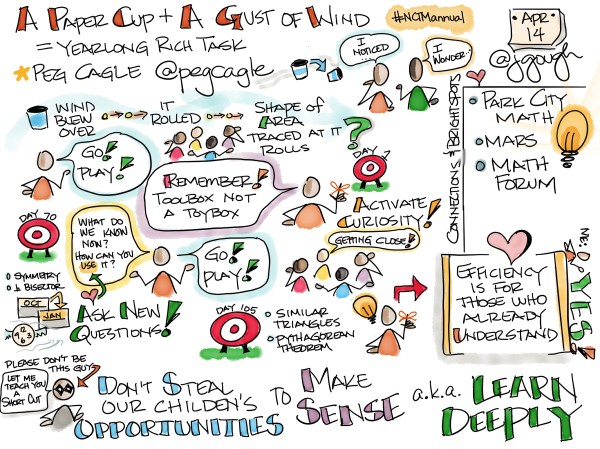 A Paper Cup + A Gust of Wind
= Yearlong Rich Task
Peg Cagle @pegcagle
#NCTMannual
APR
14
@jgough
I
NOTICED...
I
WONDER...
WIND
BLEW
OVER
IT
ROLLED
SHAPE OF
AREA
TRACED AT IT
ROLLS
?
GO!
PLAY!
REMEMBER!
TOOLBOX NOT
A TOYBOX
DAY 1
ACTIVATE
CURIOSITY!
CONNECTIONS & BRIGHTSPOTS
PARK CITY
MATH
MARS
MATH
FORUM
DAY 70
WHAT DO
WE KNOW
NOW?
HOW CAN YOU
USE IT?
GO!
PLAY!
GETTING CLOSE!
SYMMETRY
⊥ BISECTOR
OCT
JAN
12
9 3
6
ASK NEW
QUESTIONS!
DAY 105
SIMILAR
TRIANGLES
PYTHAGOREAN
THEOREM
EFFICIENCY
IS FOR
THOSE WHO
ALREADY
UNDERSTAND
ME:
YES!
PLEASE DON'T BE
THIS GUY!
LET ME
TEACH YOU
A
SHORT CUT
DON'T STEAL
OUR CHILDEN'S
OPPORTUNITIES
TO MAKE
SENSE
a.k.a. LEARN
DEEPLY